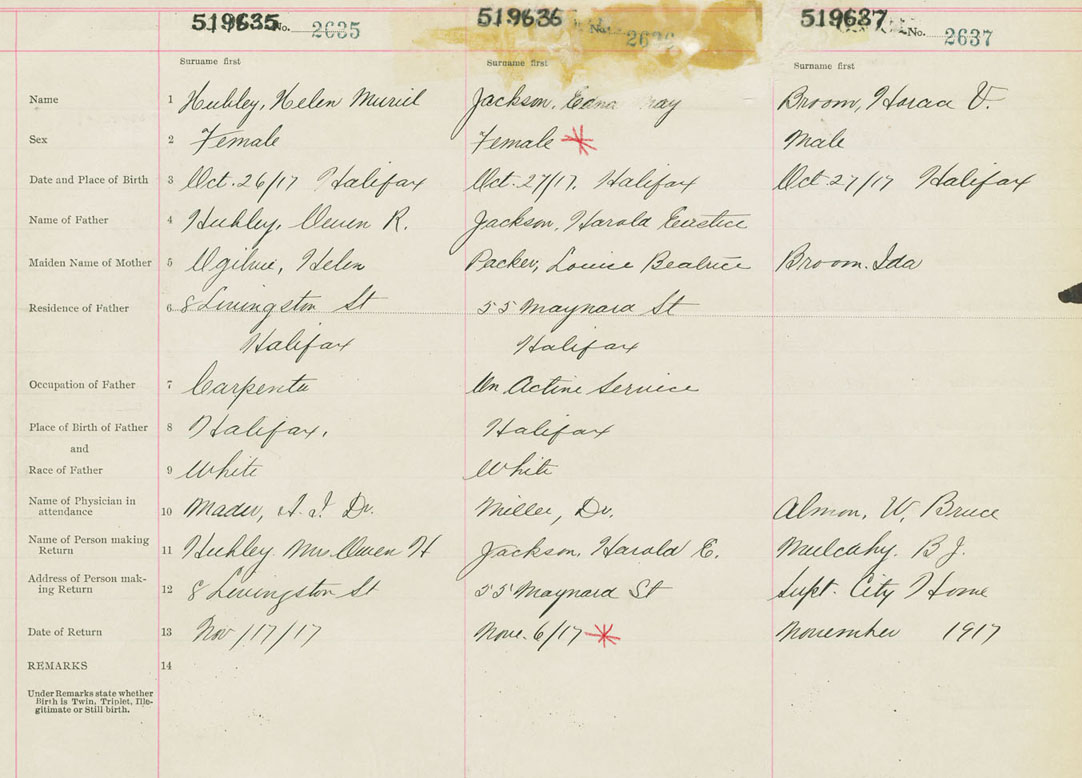 519635 No. 2635 519636 No. 2636 519637 No. 2637
Surname first Surname first Surname first
Name 1 Hubley, Helen Muriel Jackson, Edna May Broom, Horace V.
Sex 2 Female Female Male
Date and Place of Birth 3 Oct. 26/17 Halifax Oct. 27/17. Halifax Oct 27/17 Halifax
Name of Father 4 Hubley, Owen R. Jackson, Harold Eustice
Maiden Name of Mother 5 Ogilvie, Helen Packer, Louise Beatrice Broom. Ida
Residence of Father 6 8 Livingston St 55 Maynard St
Halifax Halifax
Occupation of Father 7 Carpenter On Active Service
Place of Birth of Father 8 Halifax. Halifax
and
Race of Father 9 White White
Name of Physician in
attendance 10 Mader, A. I. Dr. Miller, Dr. Almon, W. Bruce
Name of Person making
Return 11 Hubley. Mrs. Owen H Jackson, Harold E. Mulcahy. B J.
Address of Person mak-
ing Return 12 8 Livingston St 55 Maynard St Supt. City Home
Date of Return 13 Nov /17/17 Nove. 6/17 November 1917
REMARKS 14
Under Remarks state whether
Birth is Twin, Triplet, Ille-
gitimate or Still birth.